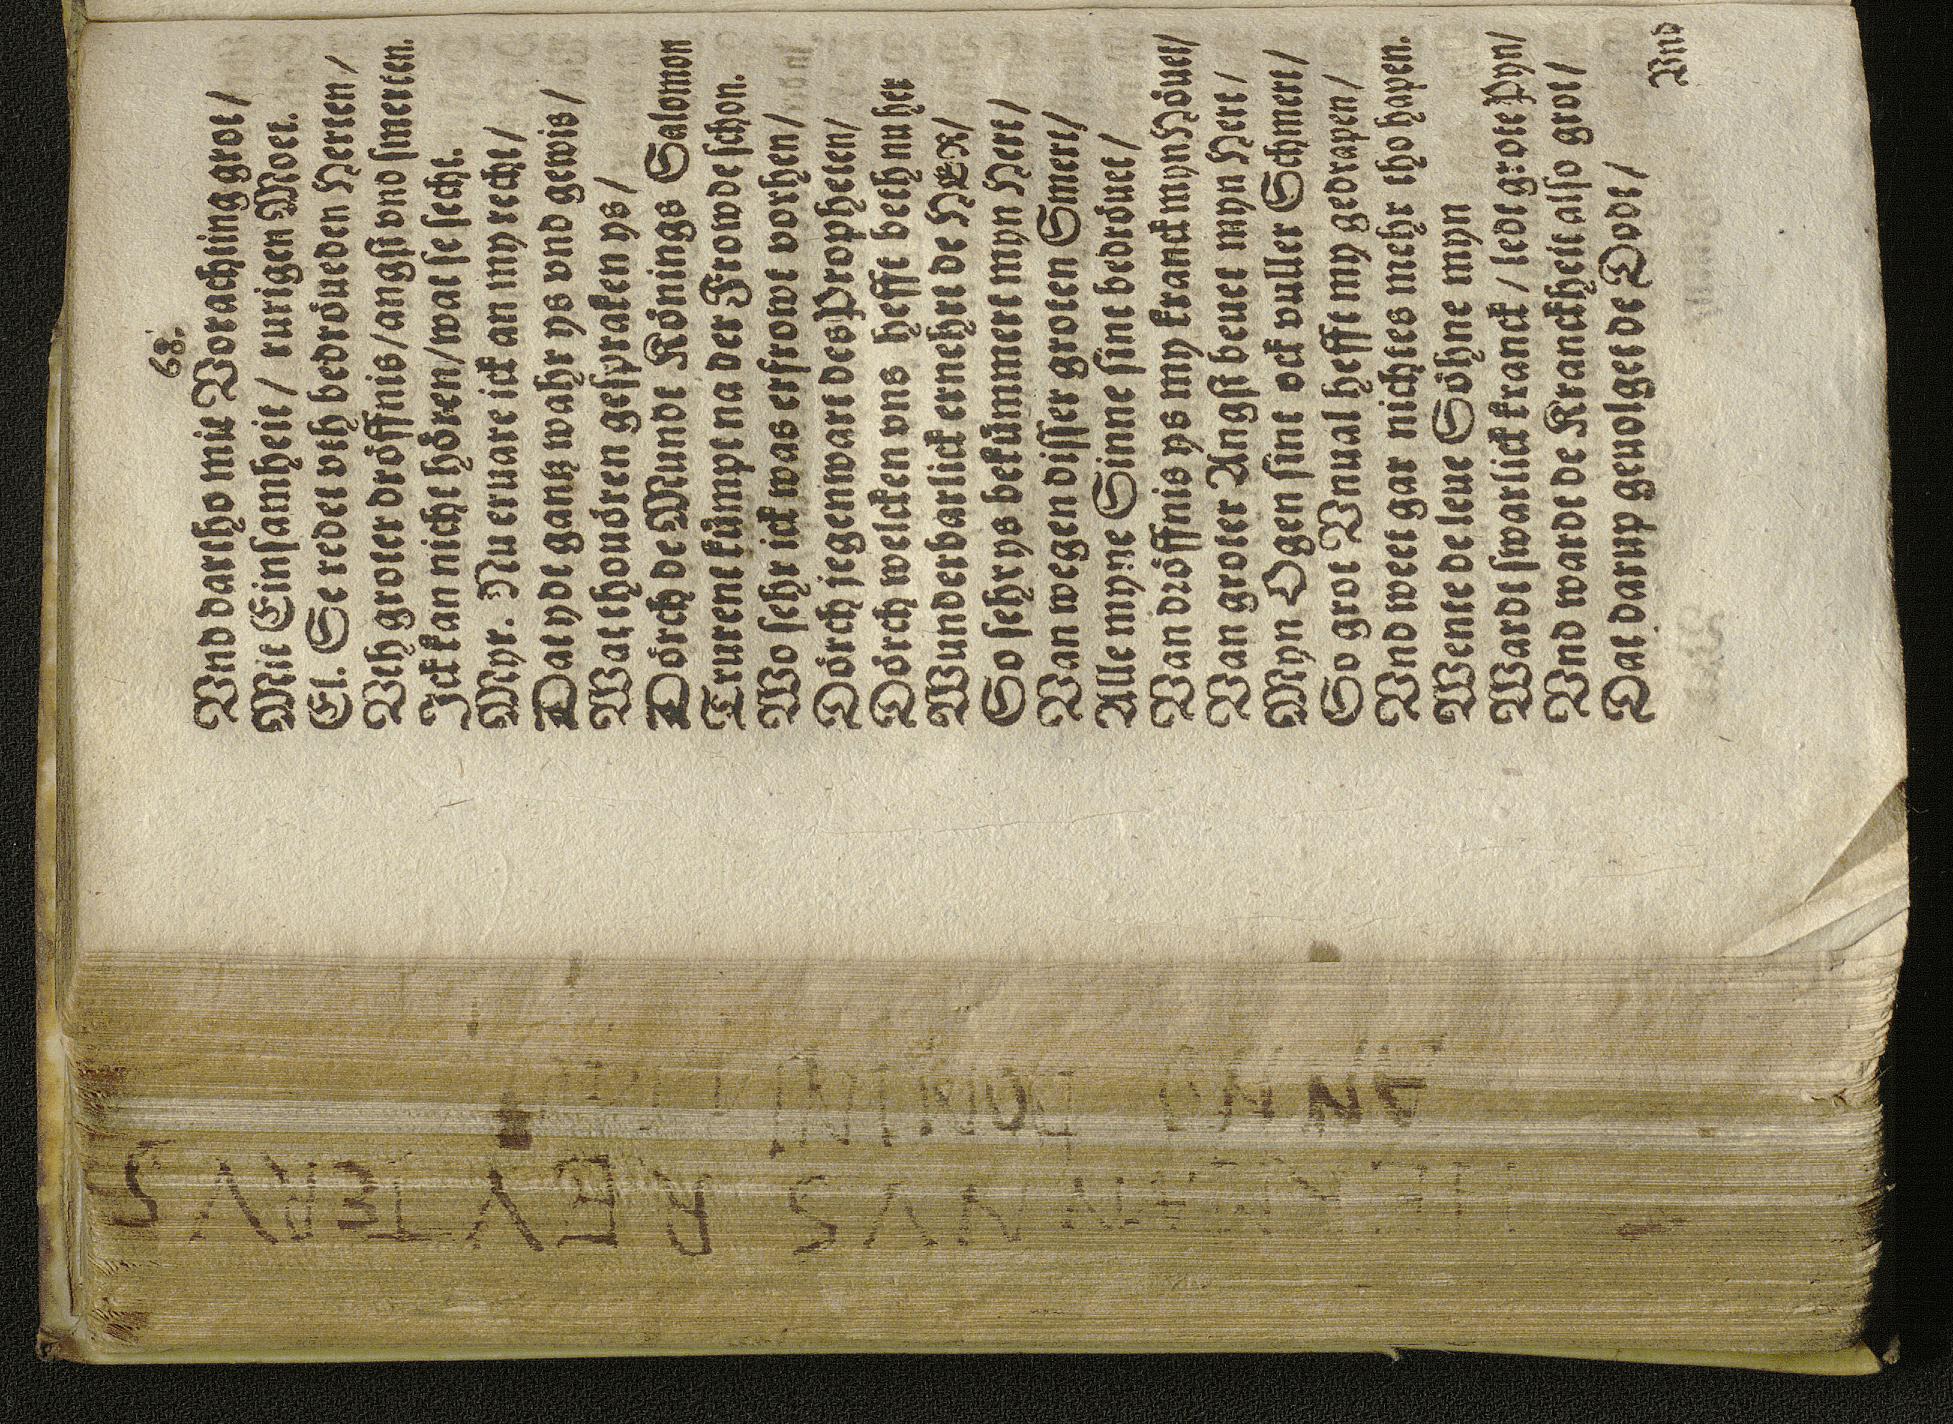 68.
Vnd dartho mit Vorachting grot /
Mit Einsamheit / rurigen Moet.
El. Se redet vth bedröueden Herten /
Vth groter dröffnis / angst vnd smerten.
Ick kan nicht hören / wat se secht.
Myr. Nu eruare ick an my recht /
Dat ydt gantz wahr ys vnd gewis /
Wat thouören gespraken ys /
Dörch de Munde Könings Salomon
Trurent kümpt na der Frowde schon.
Wo sehr ick was erfrowt vorhen /
Dörch jegenwart des Propheten /
Dörch welcken vns hefft beth nu her
Wunderbarlick ernehrt de HER /
So sehr ys bekümmert myn Hert /
Van wegen disser groten Smert /
Alle myne Sinne sint bedröuet /
Van dröffnis ys my kranck myn Höuet /
Van groter Angst beuet myn Hert /
Myn Ogen sint ock vuller Schmert /
So grot Vnual hefft my gedrapen /
Vnd weet gar nichtes mehr tho hapen.
Wente de leue Söhne myn
Wardt swarlick kranck / ledt grote Pyn /
Vnd wardt de Kranckheit also grot /
Dat darup geuolget de Dodt /
Vnd
ANNO DOMINI